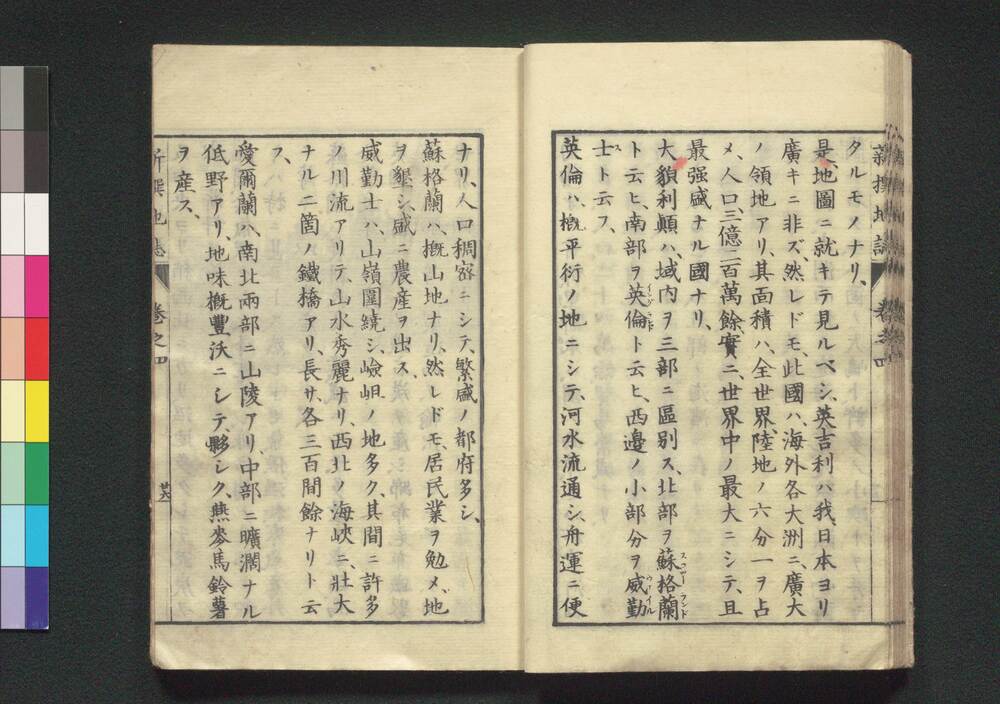 新撰地誌 卷之四
タルモノナリ、
是、地圖ニ就キテ見ルベシ、英吉利ハ我、日本ヨリ
廣キニ非ズ、然レドモ、此國ハ、海外各大洲ニ、廣大
ノ領地アリ、其面積ハ、全世界、陸地ノ六分一ヲ占
メ、人口三億二百萬餘、實ニ、世界中ノ最大ニシテ、且
最強盛ナル國ナリ、
大貌利顛ハ、域内ヲ三部ニ區別ス、北部ヲ蘇格蘭スコツトランド
ト云ヒ、南部ヲ英倫イングランドト云ヒ、西邊ノ小部分ヲ威勤ウヱイル
士スト云フ、
英倫ハ、概平衍ノ地ニシテ、河水流通シ、舟運ニ便
ナリ、人口稠密ニシテ、繁盛ノ都府多シ、
蘇格蘭ハ、概山地ナリ、然レドモ、居民業ヲ勉メ、地
ヲ墾シ、盛ニ農産ヲ出ス、
威勤士ハ、山嶺圍繞シ、嶮岨ノ地多ク、其間ニ許多
ノ川流アリテ、山水秀麗ナリ、西北ノ海峽ニ、壯大
ナル二箇ノ鐵橋アリ、長サ、各三百間餘ナリト云
フ、
愛爾蘭ハ、南北兩部ニ山陵アリ、中部ニ曠濶ナル
低野アリ、地味概豐沃ニシテ、夥シク、燕麥馬鈴薯
ヲ産ス、
新撰地誌 卷之四 廿六